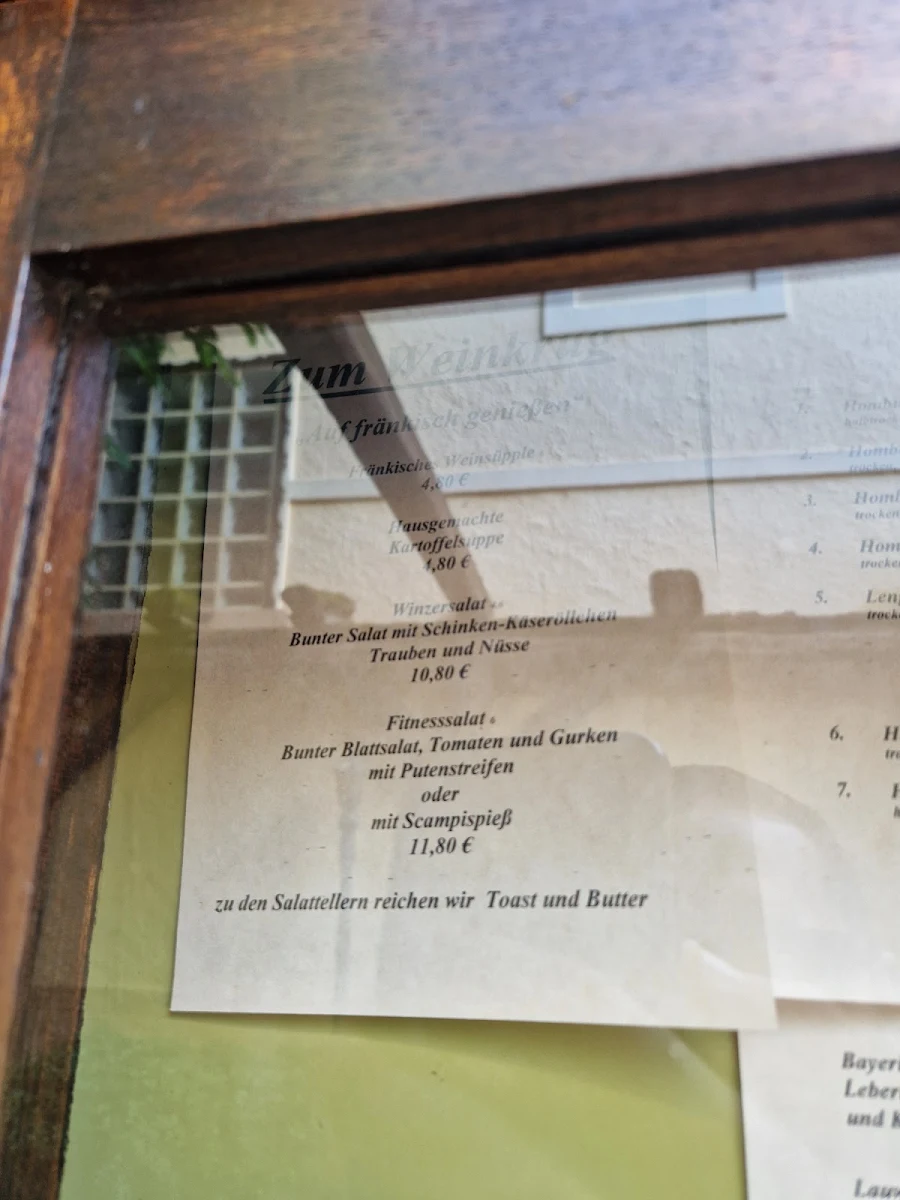 Zum Weinkrug
„Auf fränkisch genießen“
Fränkisches Weinsüpple
4,80 €
Hausgemachte
Kartoffelsuppe
4,80 €
Winzersalat
Bunter Salat mit Schinken-Käseröllchen
Trauben und Nüsse
10,80 €
Fitnesssalat 6
Bunter Blattsalat, Tomaten und Gurken
mit Putenstreifen
oder
mit Scampispieß
11,80 €
zu den Salattellern reichen wir Toast und Butter
1.
2.
trocken,
3.
trocken
4.
5.
trock
6.
7.
Bayer
Leber
und K